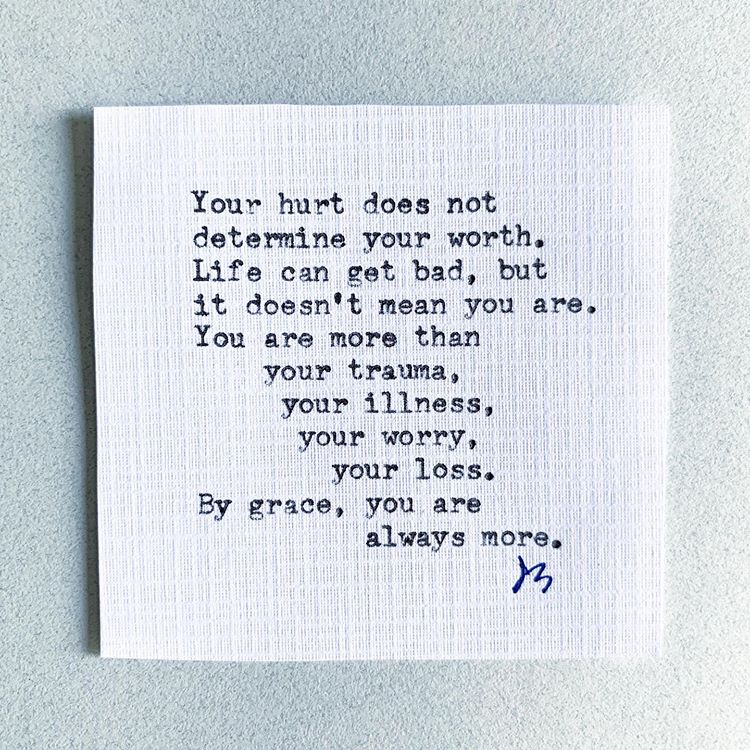 Your hurt does not
determine your worth.
Life can get bad, but
it doesn't mean you are.
You are more than
your trauma,
your illness,
your worry,
your loss.
By grace, you are
always more.